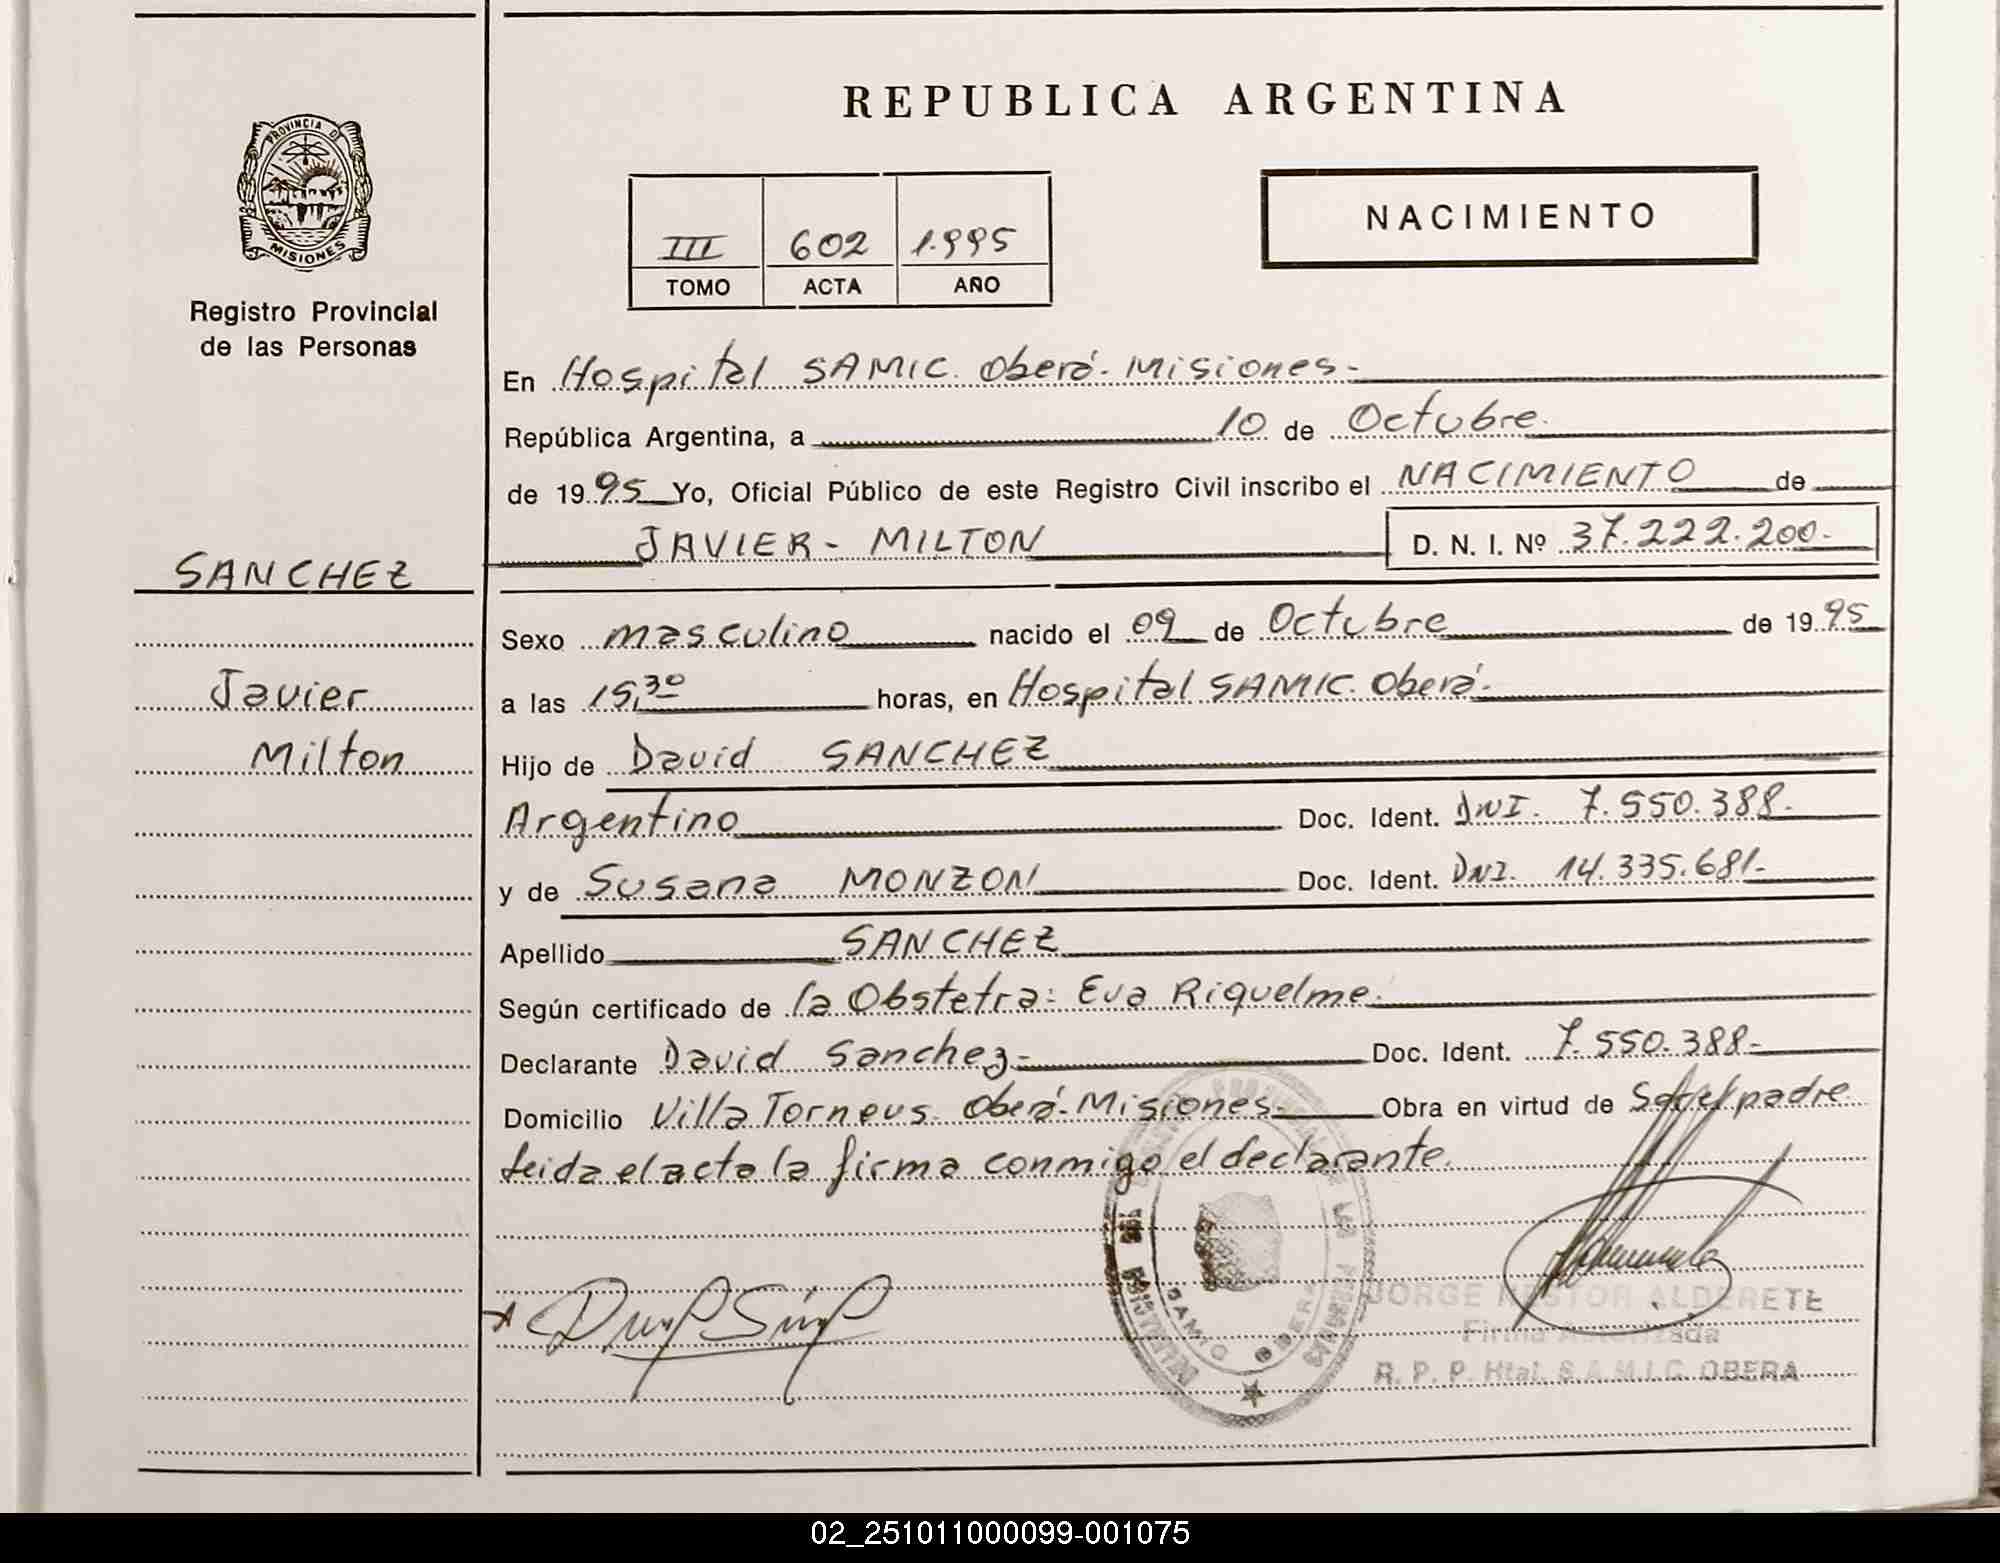 REPUBLICA ARGENTINA
PROVINCIA DE
MISIONES
Registro Provincial
de las Personas
III 602 1.995
TOMO ACTA AÑO
NACIMIENTO
En Hospital SAMIC. Oberá. Misiones.-
República Argentina, a 10 de Octubre.
de 1995 Yo, Oficial Público de este Registro Civil inscribo el NACIMIENTO de
JAVIER - MILTON D. N. I. Nº 37.222.200.-
SANCHEZ
Javier
Milton
Sexo masculino nacido el 09 de Octubre de 1995
a las 15,30 horas, en Hospital SAMIC. Oberá.-
Hijo de David SANCHEZ
Argentino Doc. Ident. DNI. 7.550.388.-
y de Susana MONZON Doc. Ident. DNI. 14.335.681.-
Apellido SANCHEZ
Según certificado de la Obstetra: Eva Riquelme.
Declarante David Sanchez.- Doc. Ident. 7.550.388.-
Domicilio Villa Torneus. Oberá-Misiones.- Obra en virtud de Ser el padre
Leida el acta la firma conmigo el declarante.
SAMIC OBERA
JORGE NESTOR ALDERETE
Firma Autorizada
R. P. P. Htal. S.A.M.I.C. OBERA
02_251011000099-001075